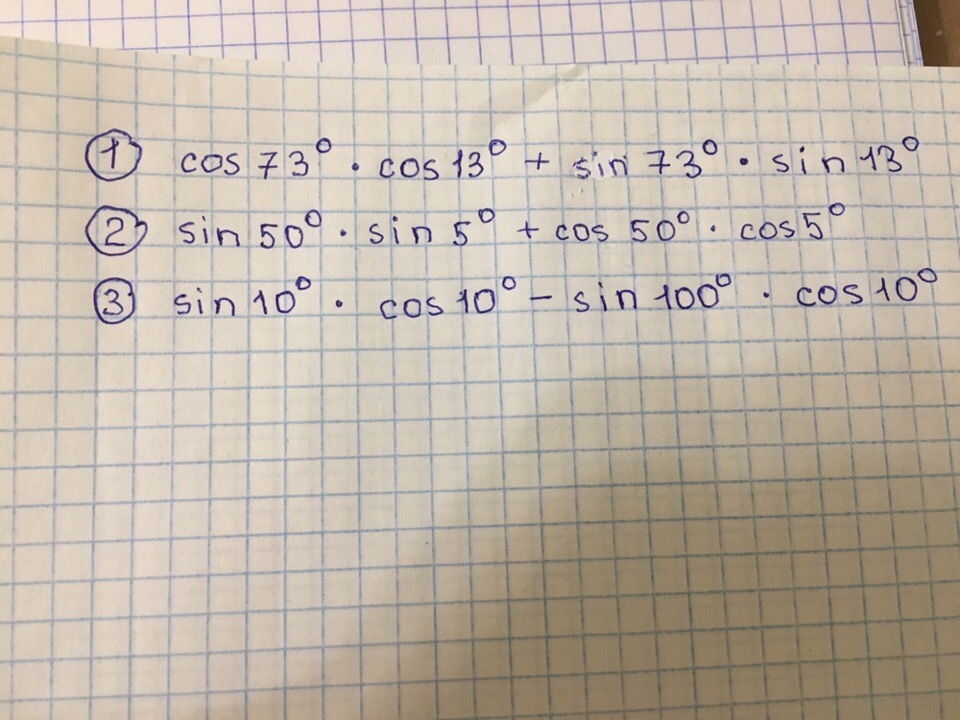 ① cos 73° · cos 13° + sin 73° · sin 13°
② sin 50° · sin 5° + cos 50° · cos 5°
③ sin 10° · cos 10° - sin 100° · cos 10°